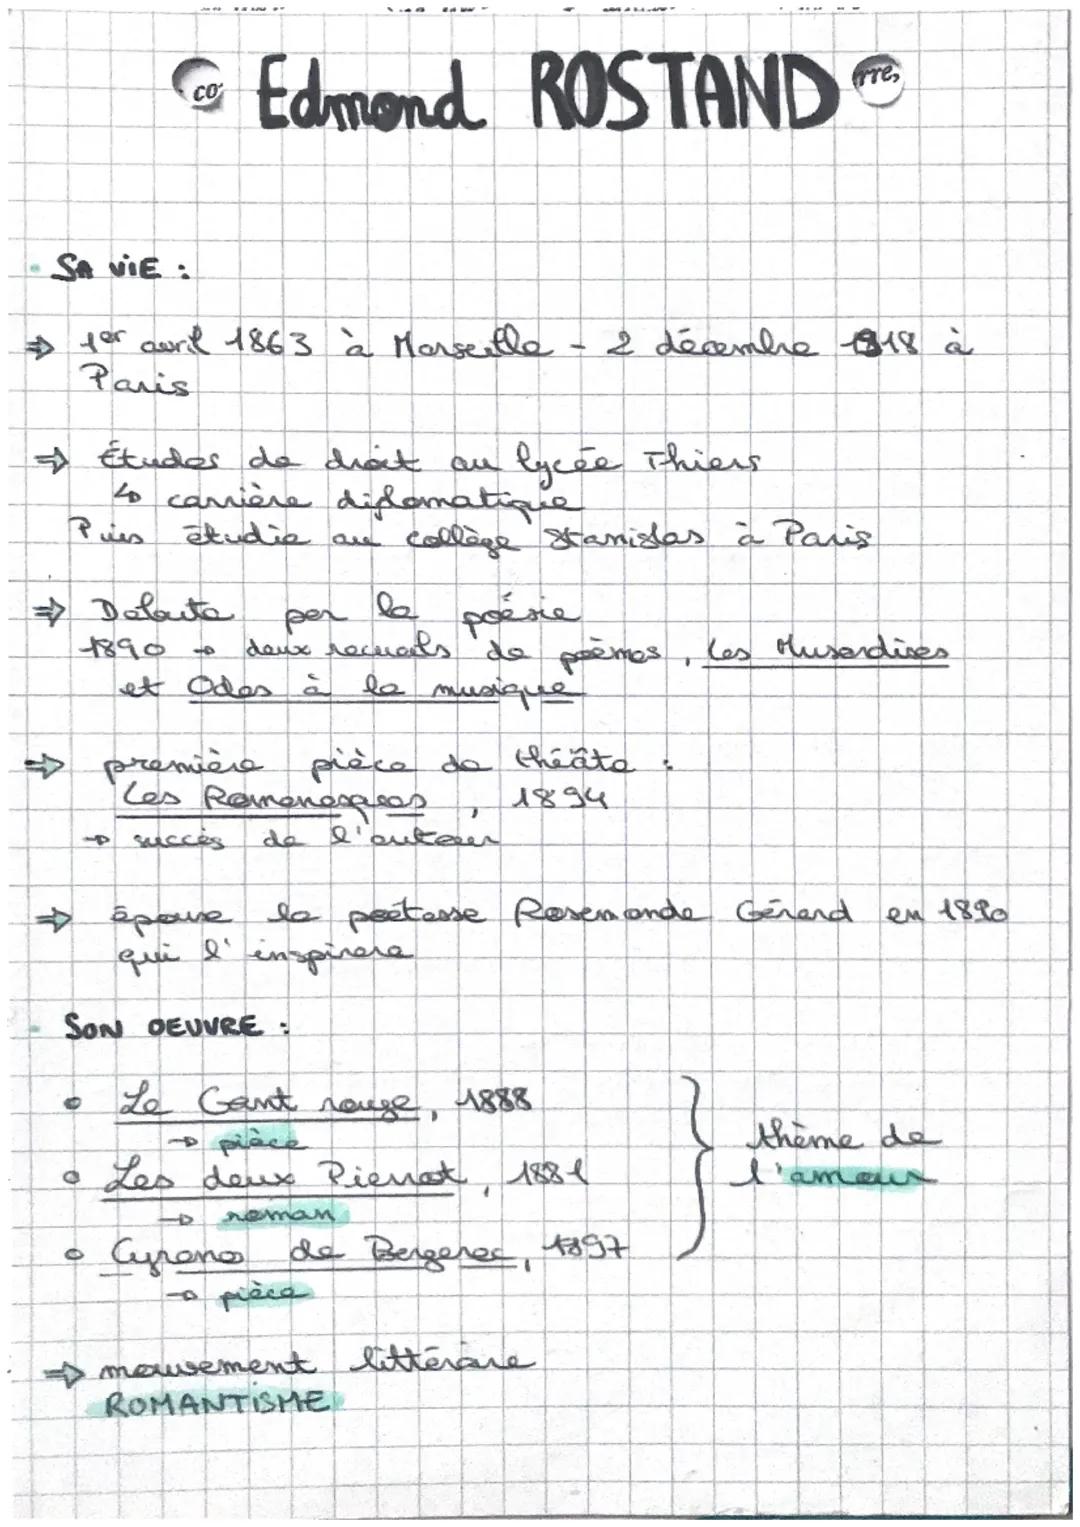 co
Edmond ROSTAND
rre,
SA ViE :
⇒ 1er avril 1863 à Marseille - 2 décembre 1918 à
Paris
⇒ Études de droit au lycée Thiers
↳ carrière diplomatique
Puis étudie au collège Stanislas à Paris
⇒ Débute par la poésie
1890 → deux recueils de poèmes, Les Musardises
et Odes à la musique
⇒ première pièce de théâte :
Les Romanesques, 1894
→ succès de l'auteur
⇒ épouse la poétesse Rosemonde Gérard en 1890
qui l'inspirera
SON OEUVRE :
Le Gant rouge, 1888
→ pièce
Les deux Pierrot, 1881
→ roman
Cyrano de Bergerac, 1897
→ pièce
thème de
l'amour
⇒ mouvement littéraire
ROMANTISME